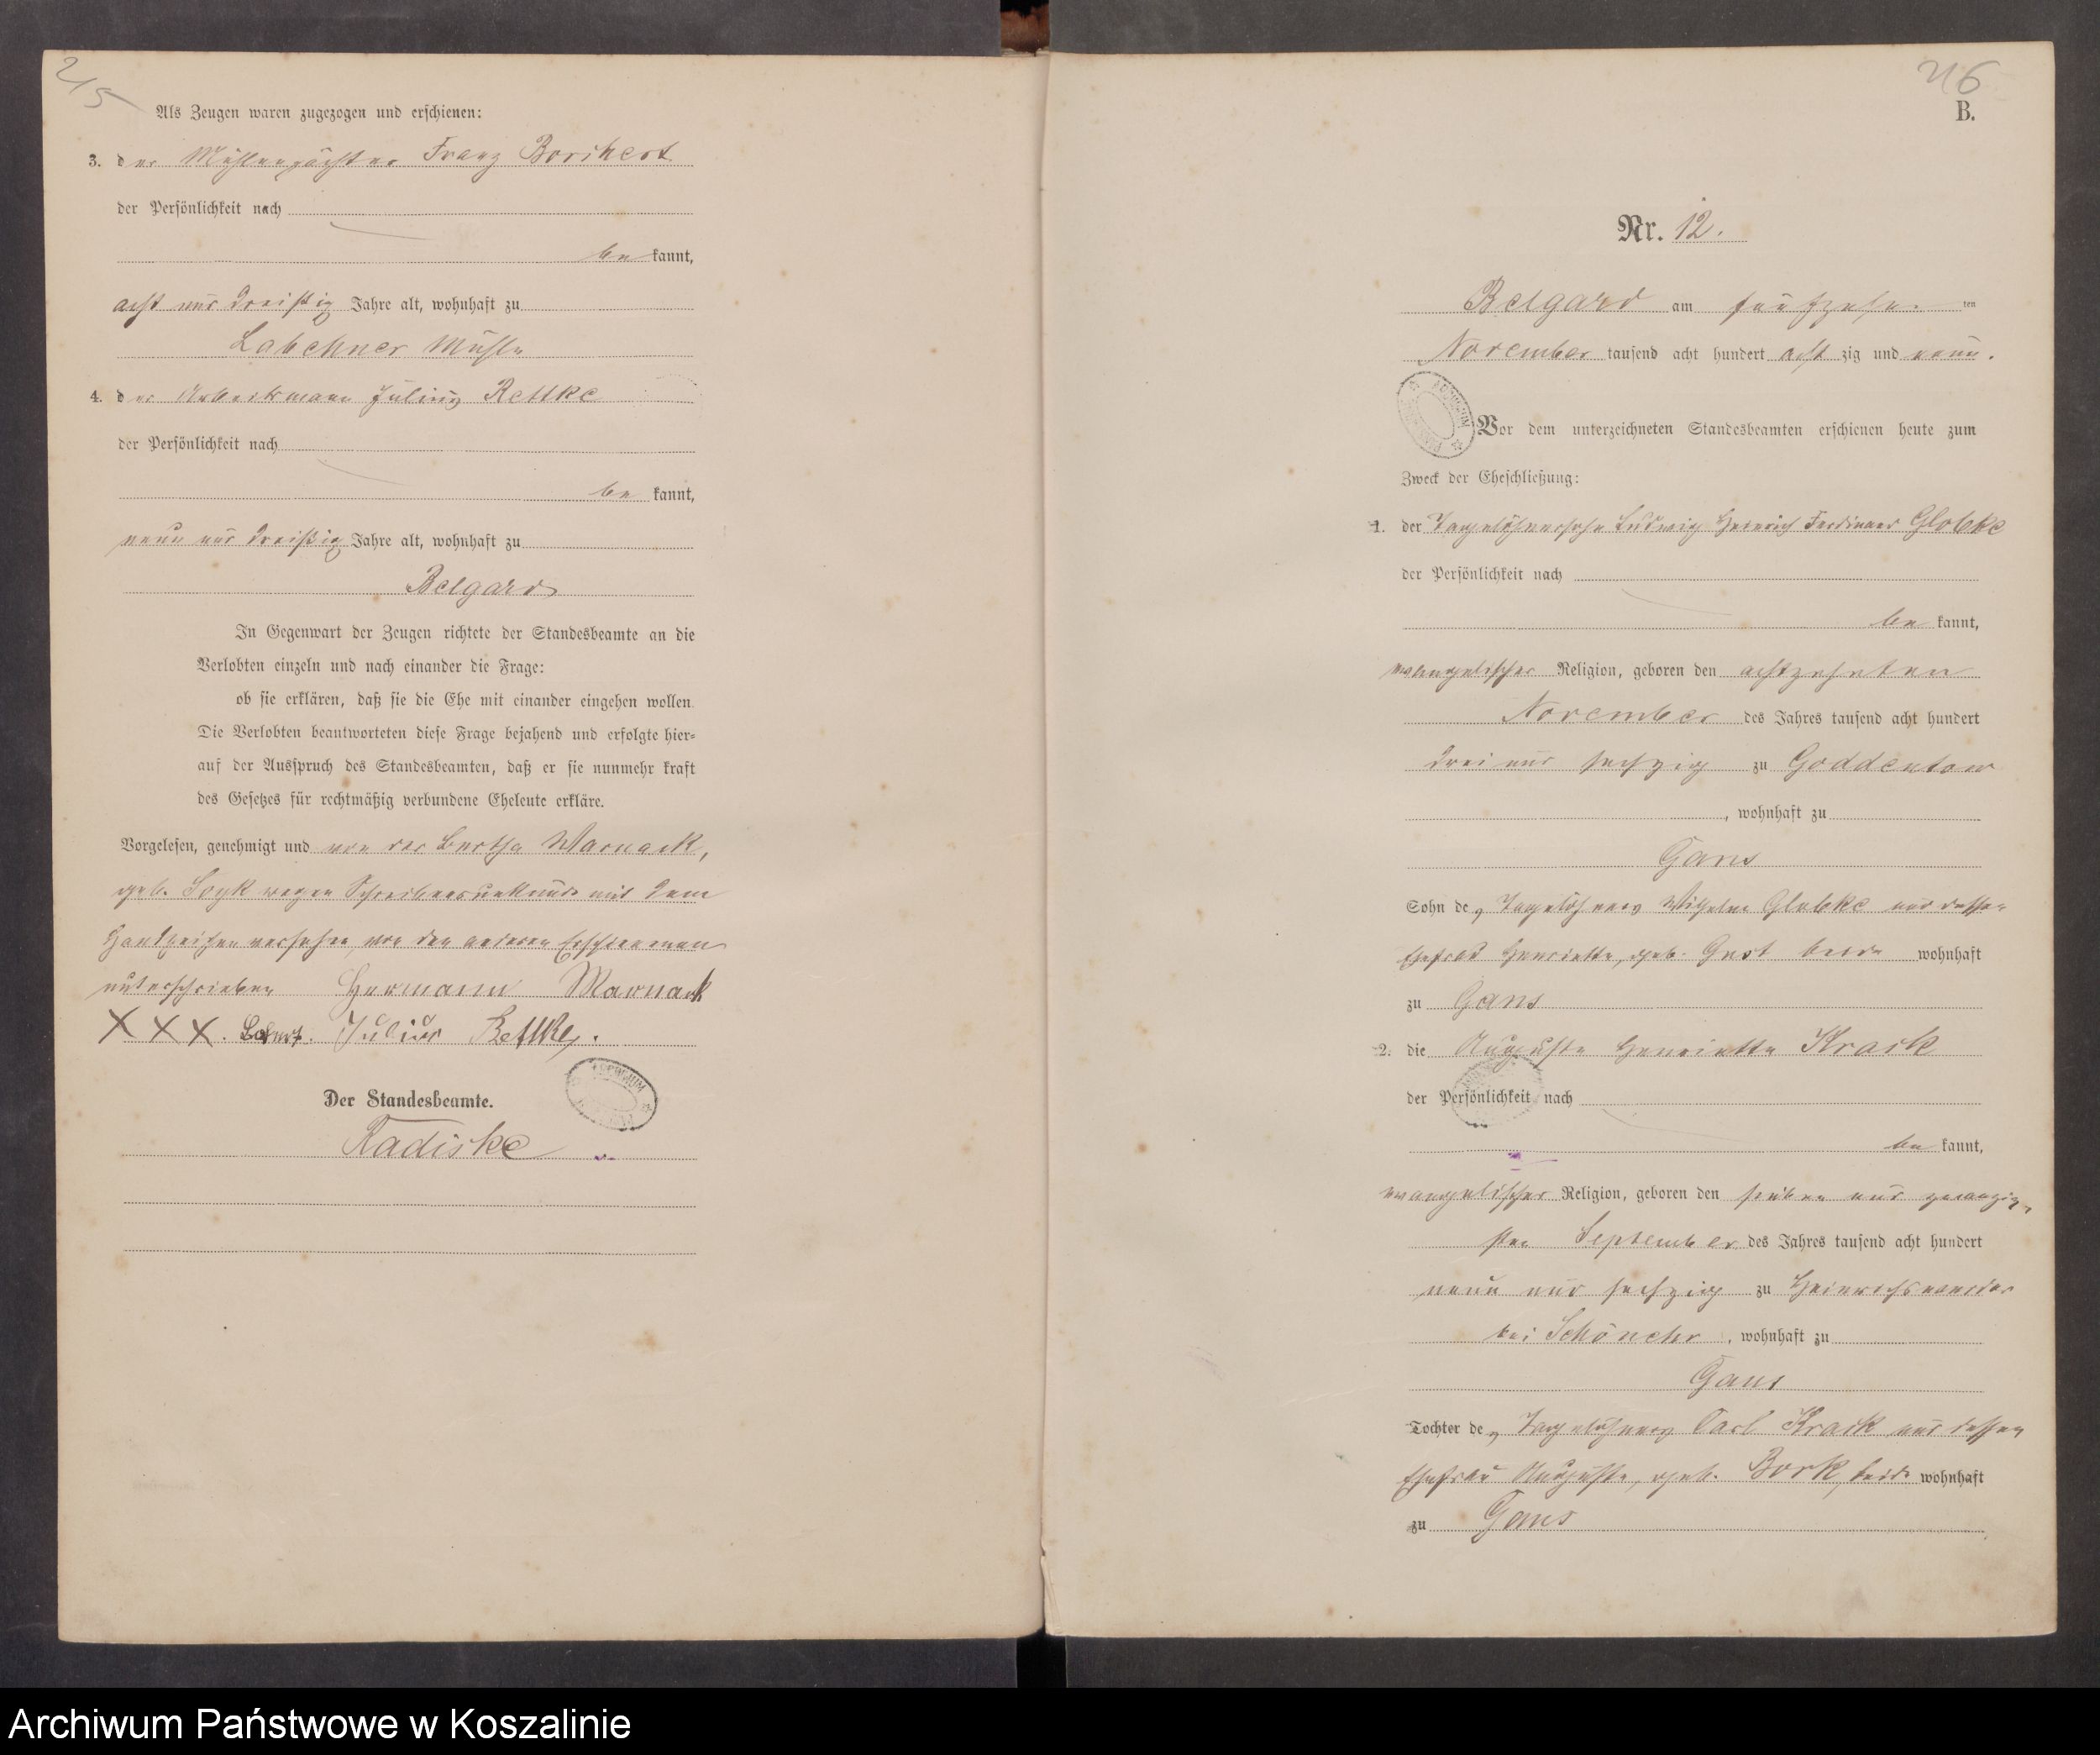 215
Als Zeugen waren zugezogen und erschienen:
3. der Mühlenpächter Franz Borchert
der Persönlichkeit nach
be kannt,
acht und dreißig Jahre alt, wohnhaft zu
Labehner Mühle
4. der Arbeitsmann Julius Rettke
der Persönlichkeit nach
be kannt,
neun und dreißig Jahre alt, wohnhaft zu
Belgard
In Gegenwart der Zeugen richtete der Standesbeamte an die
Verlobten einzeln und nach einander die Frage:
ob sie erklären, daß sie die Ehe mit einander eingehen wollen.
Die Verlobten beantworteten diese Frage bejahend und erfolgte hier=
auf der Ausspruch des Standesbeamten, daß er sie nunmehr kraft
des Gesetzes für rechtmäßig verbundene Eheleute erkläre.
Vorgelesen, genehmigt und von der Bertha Warnack,
geb. wegen Schreibensunkunde mit dem
Handzeichen versehen, von den anderen Erschienenen
unterschrieben Hermann Warnack
XXX. Julius Rettke.
Der Standesbeamte.
Radiske
216
B.
Nr. 12.
Belgard am fünfzehn ten
November tausend acht hundert acht zig und neun.
Vor dem unterzeichneten Standesbeamten erschienen heute zum
Zweck der Eheschließung:
1. der Tagelöhnersohn Ludwig Heinrich Ferdinand Globke
der Persönlichkeit nach
be kannt,
evangelischer Religion, geboren den achtzehnten
November des Jahres tausend acht hundert
drei und sechzig zu Goddentow
, wohnhaft zu
Gans
Sohn des Tagelöhners Wilhelm Globke und dessen
Ehefrau Henriette, geb. beide wohnhaft
zu Gans
2. die Auguste Henriette Krack
der Persönlichkeit nach
be kannt,
evangelischer Religion, geboren den sieben und zwanzig-
sten September des Jahres tausend acht hundert
neun und sechzig zu Heinrichswerder
bei Schönehr, wohnhaft zu
Gans
Tochter des Tagelöhners Carl Krack und dessen
Ehefrau Auguste, geb. Bork, beide wohnhaft
zu Gans
Archiwum Państwowe w Koszalinie